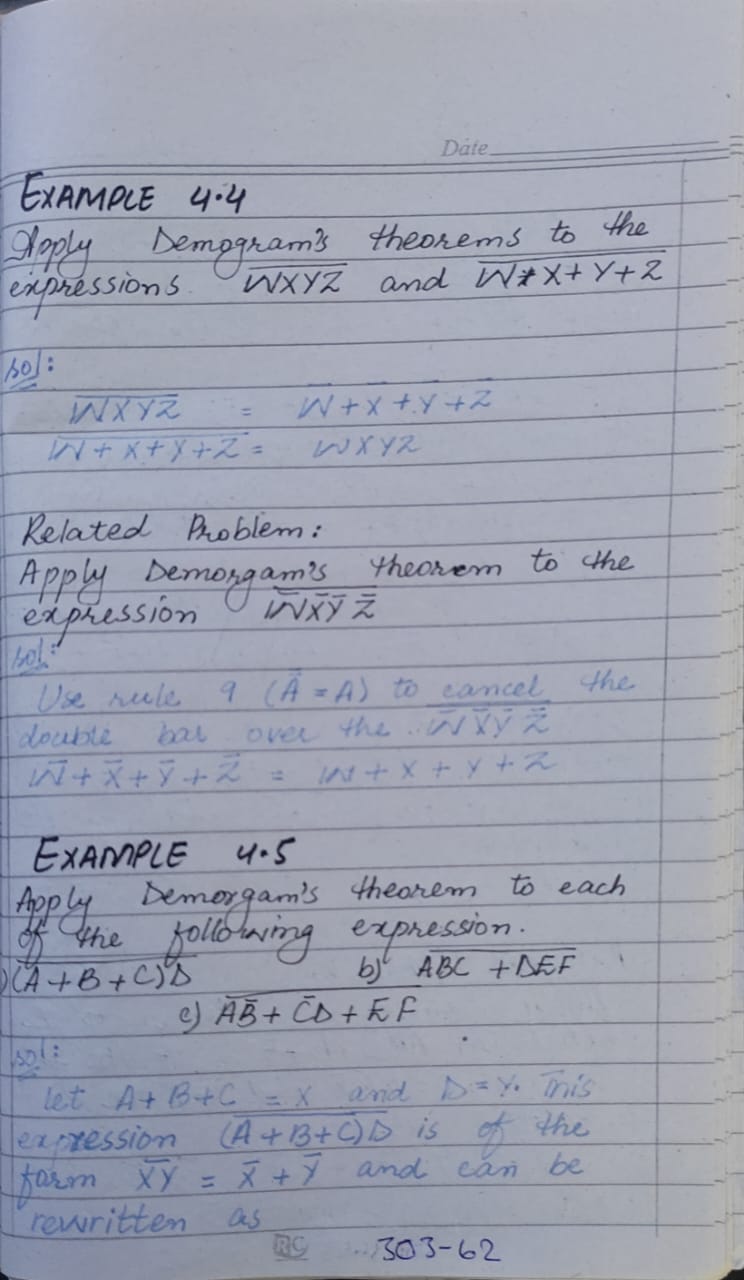 Date
EXAMPLE 4.4
Apply Demogram's theorems to the
expressions. W̅X̅Y̅Z̅ and W̅+̅X̅+̅Y̅+̅Z̅
sol:
W̅X̅Y̅Z̅ = W̅ + X̅ + Y̅ + Z̅
W̅+̅X̅+̅Y̅+̅Z̅ = WXYZ
Related Problem:
Apply Demorgam's theorem to the
expression W̿X̿Y̿Z̿
sol:
Use rule 9 (A̿ = A) to cancel the
double bar over the W̿X̿Y̿Z̿
W̿ + X̿ + Y̿ + Z̿ = W + X + Y + Z
EXAMPLE 4.5
Apply Demorgam's theorem to each
of the following expression.
)(̅A̅+̅B̅+̅C̅)̅D̅ b) A̅B̅C̅ ̅+̅D̅E̅F̅
c) A̅B̿+̅C̿D̅+̅E̅F̅
sol:
let A+B+C = X and D = Y. This
expression (̅A̅+̅B̅+̅C̅)̅D̅ is of the
form X̅Y̅ = X̅ + Y̅ and can be
rewritten as
RC 303-62